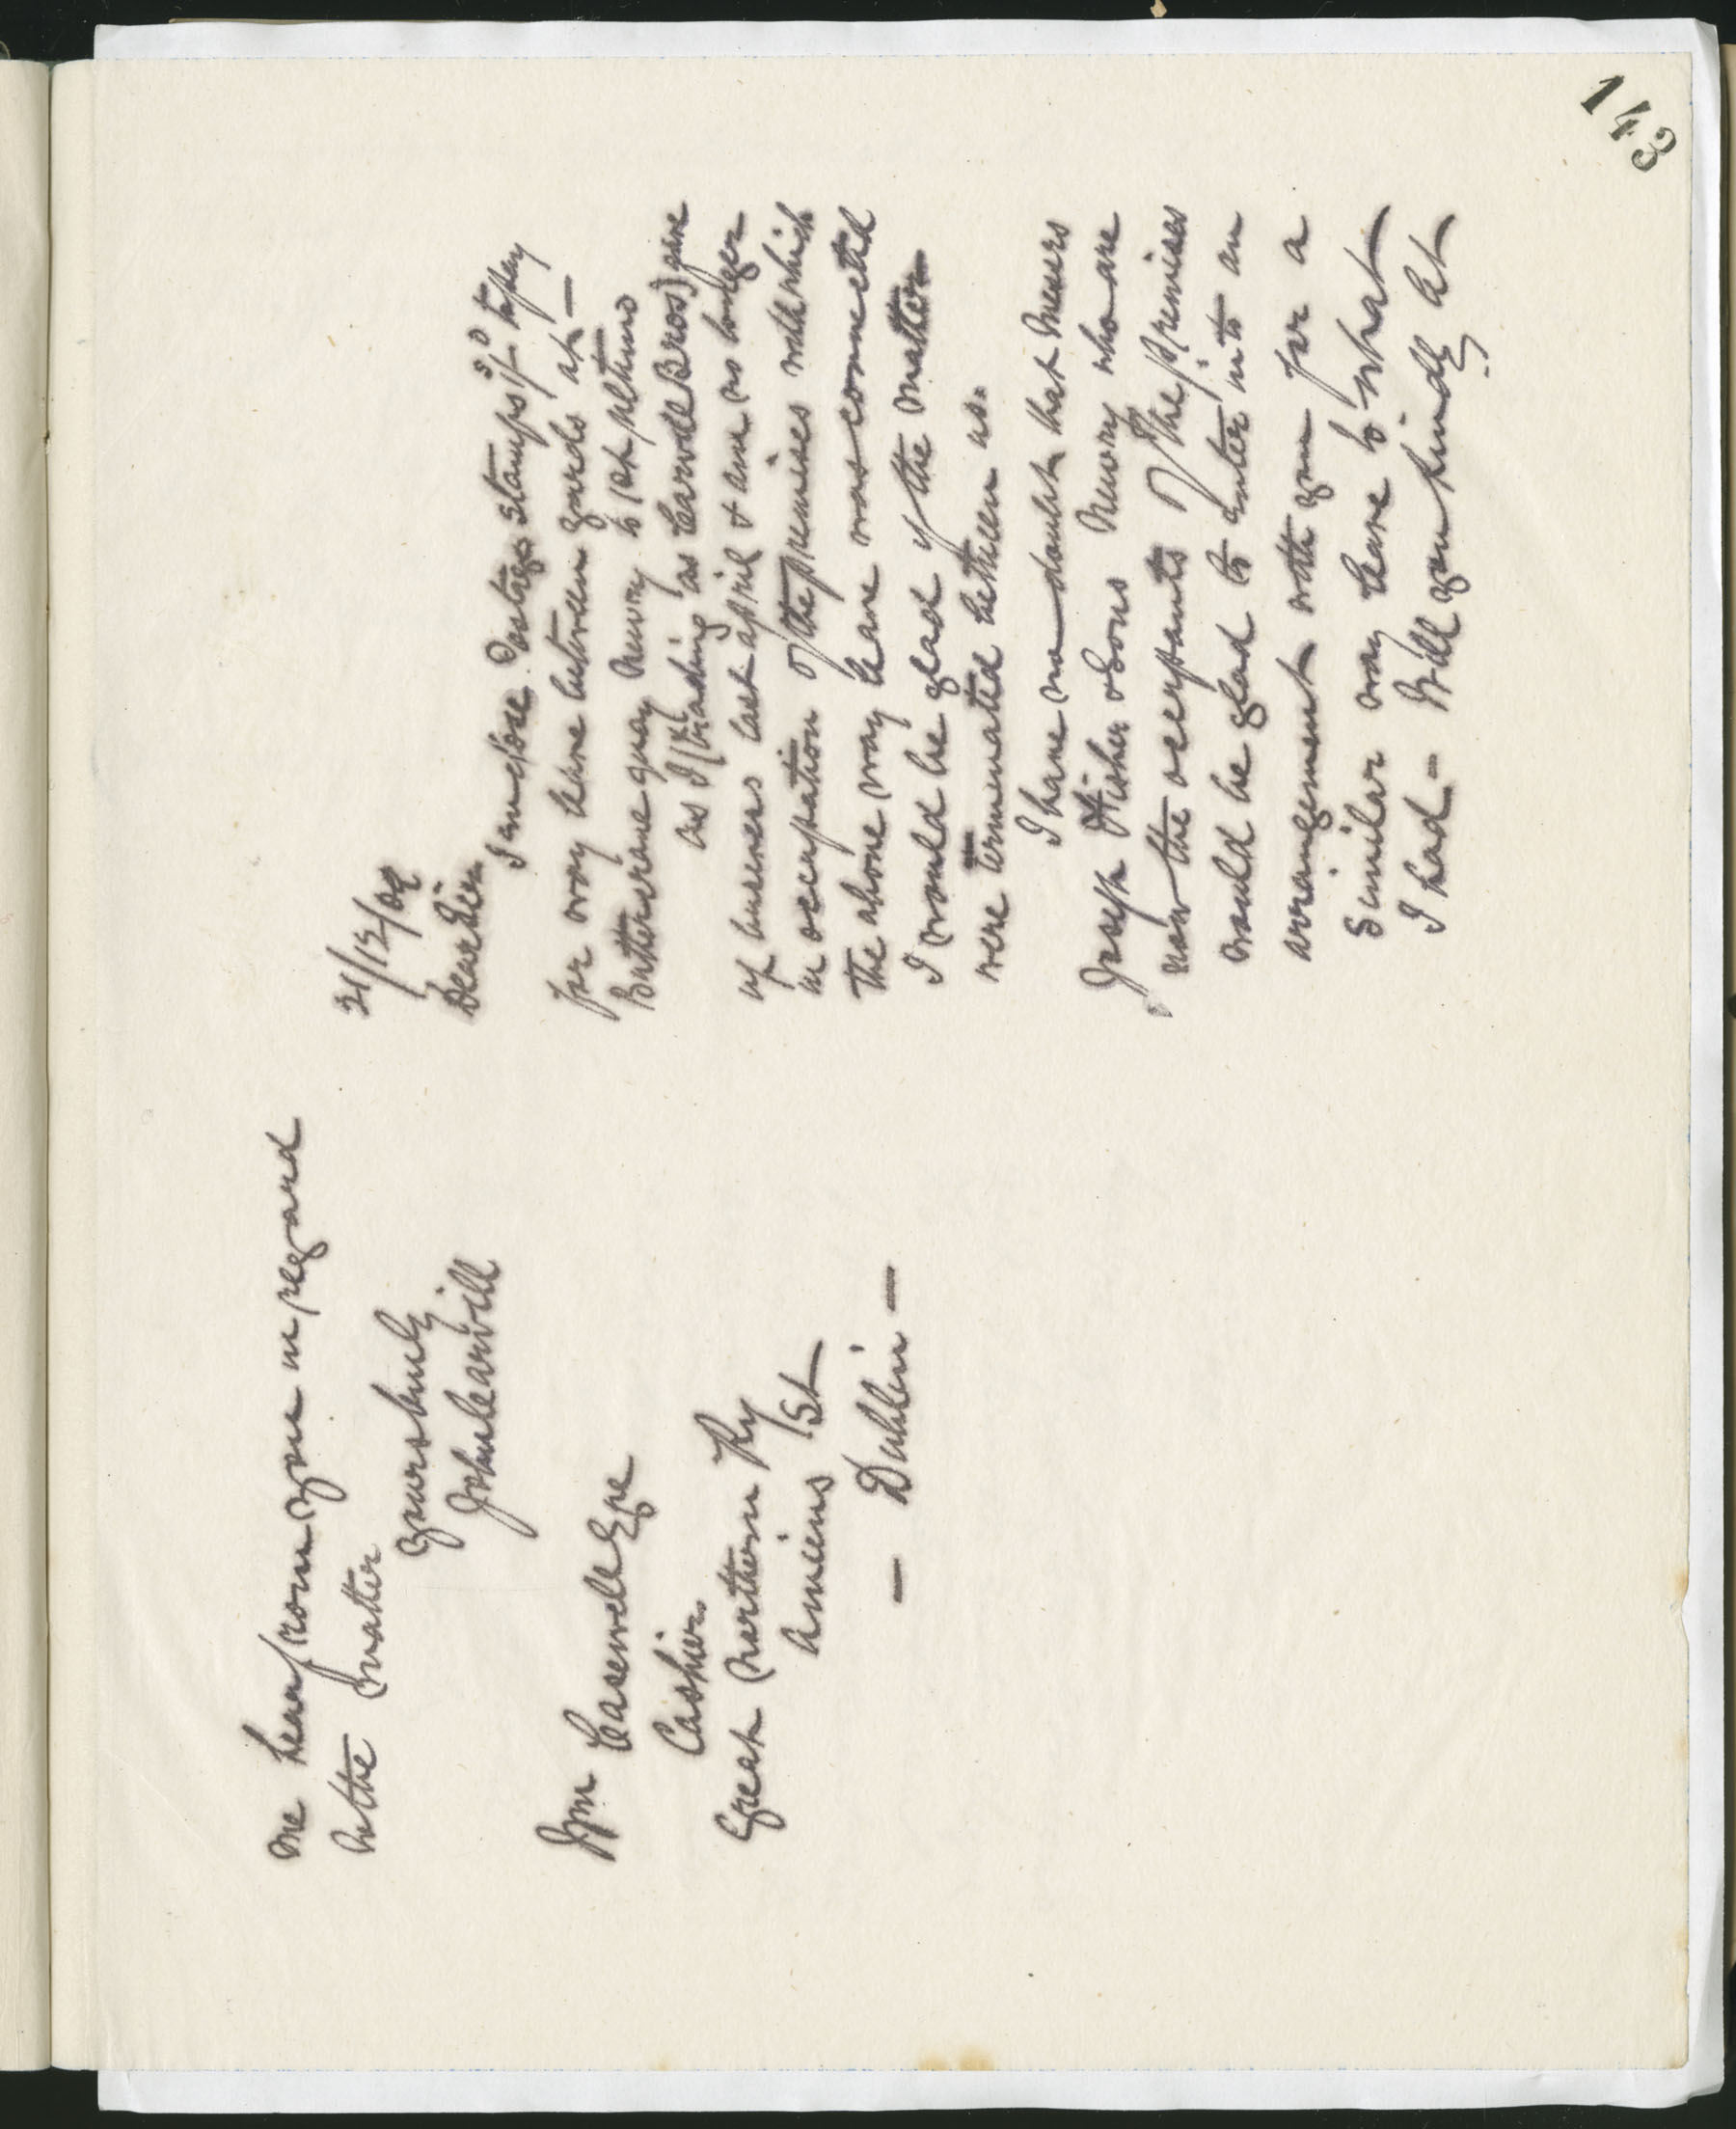 143
21/12/02
Dear Sir
I enclose Postage Stamps 1/- to pay
for way leave between yards at
Buttercrane quay Newry to 1st ultimo
As I (trading as Carvill Bros) gave
up business last april & am no longer
in occupation of the premises with which
the above way leave was connected
I would be glad if the matter
were terminated between us.
I have no doubt that Messrs
Joseph Fisher & Sons Newry who are
now the occupants of the premises
would be glad to enter into an
arrangement with you for a
similar way leave to what
I had - Will you kindly let
me hear from you in regard
to the matter
yours truly
John Carvill
Wm Caswell Eqre
Cashier
Great Northern Ry
Amiens St
- Dublin -